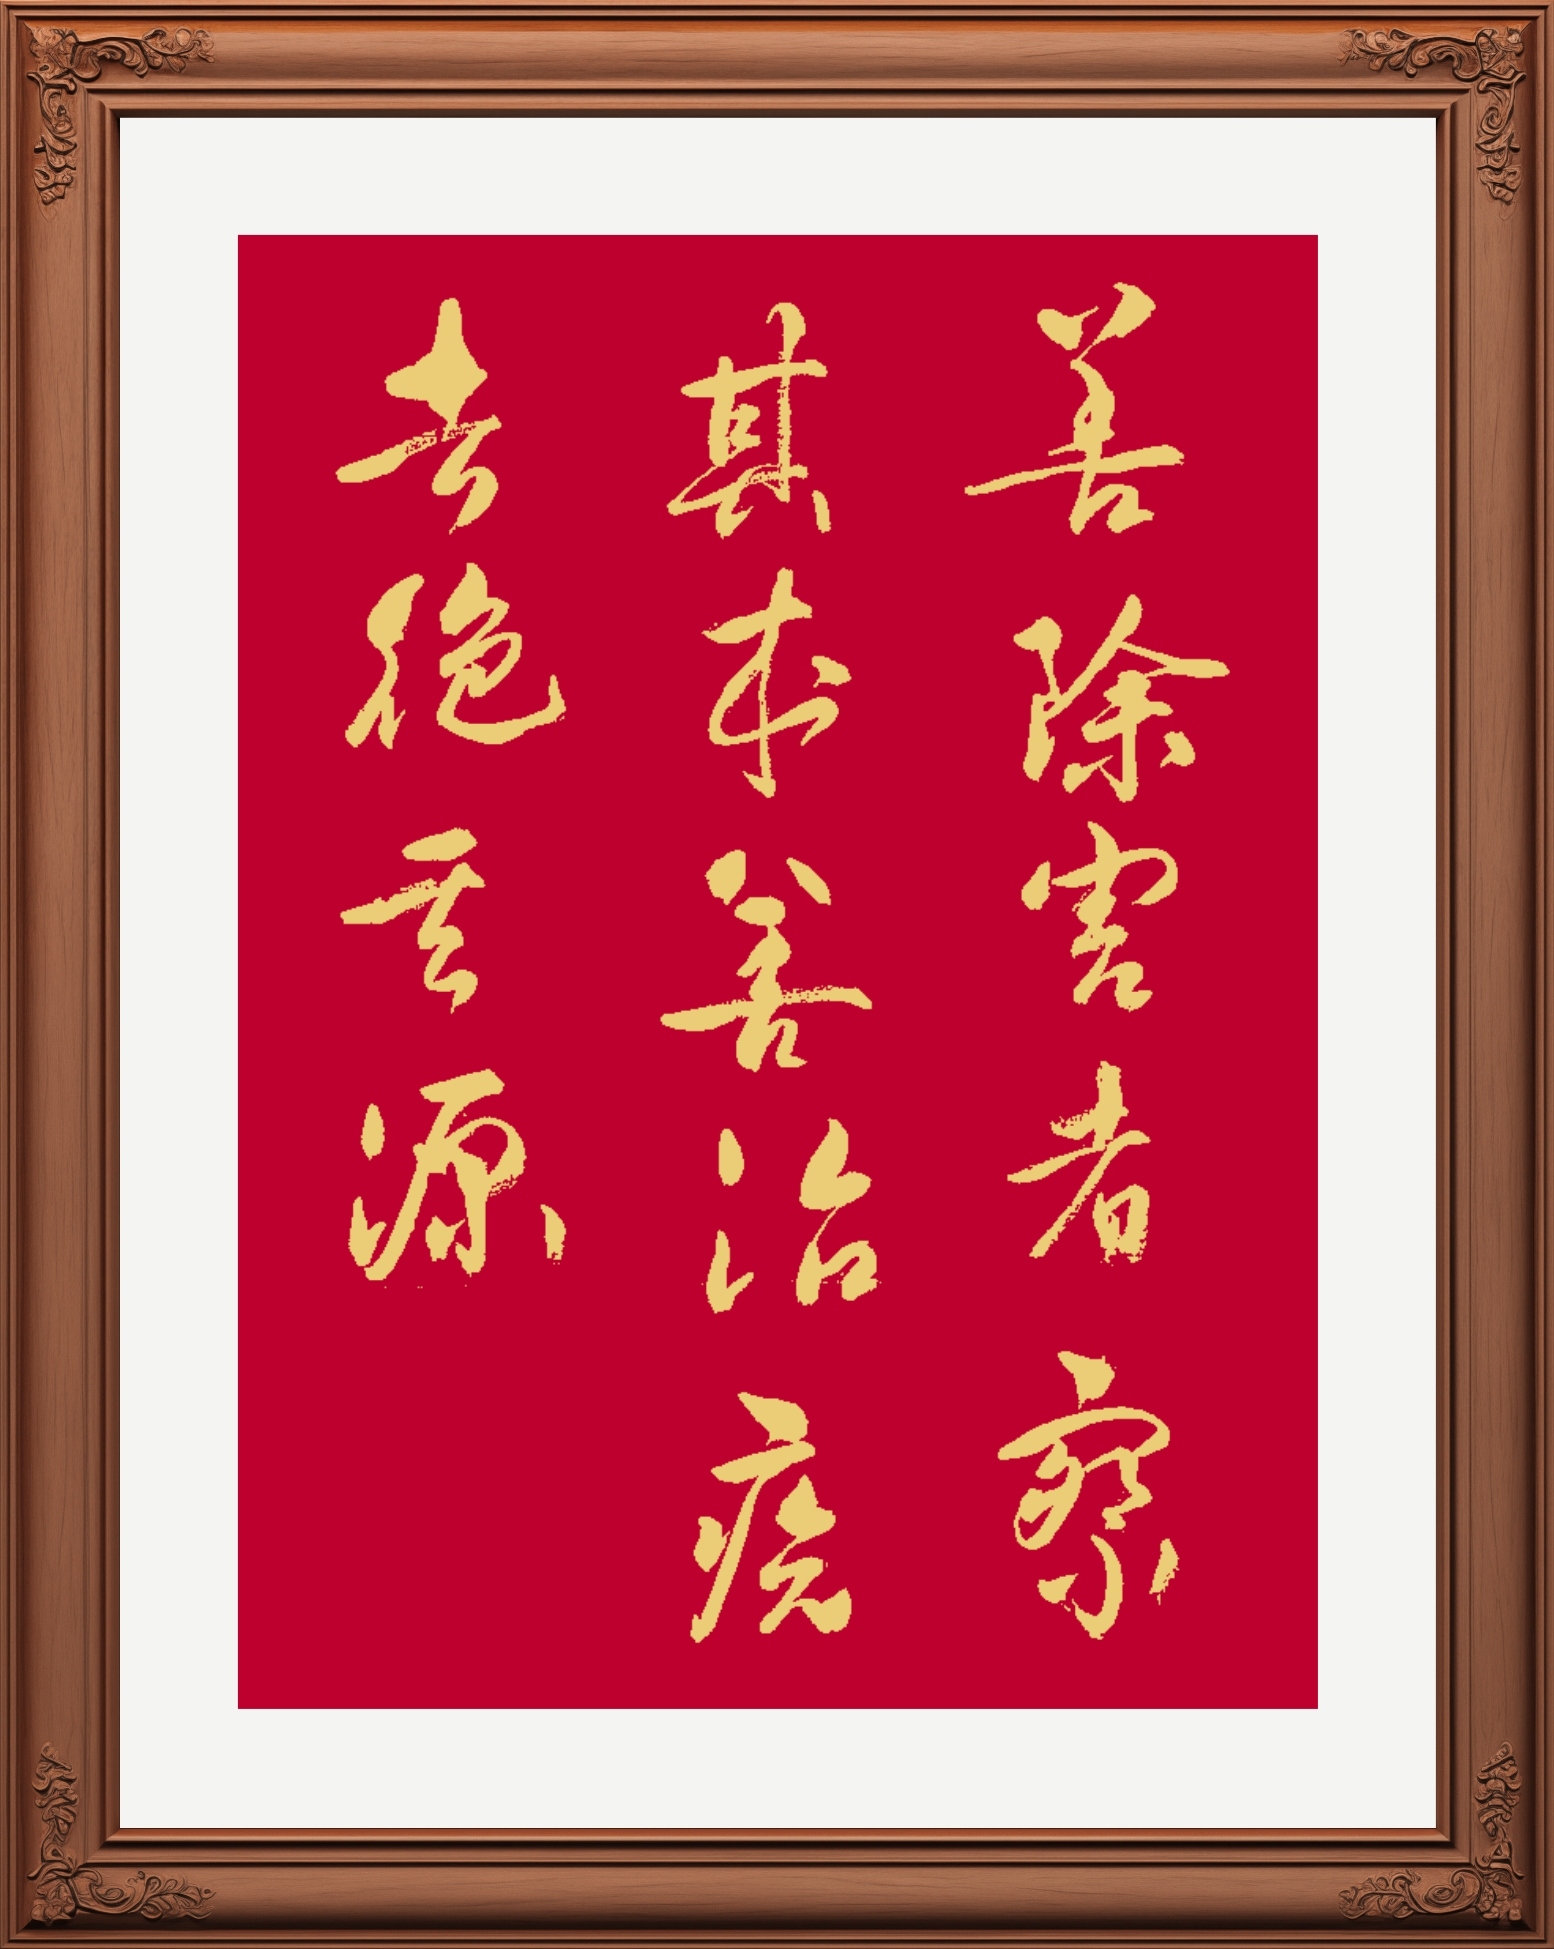 善除害者察
其本善治疾
者绝其源